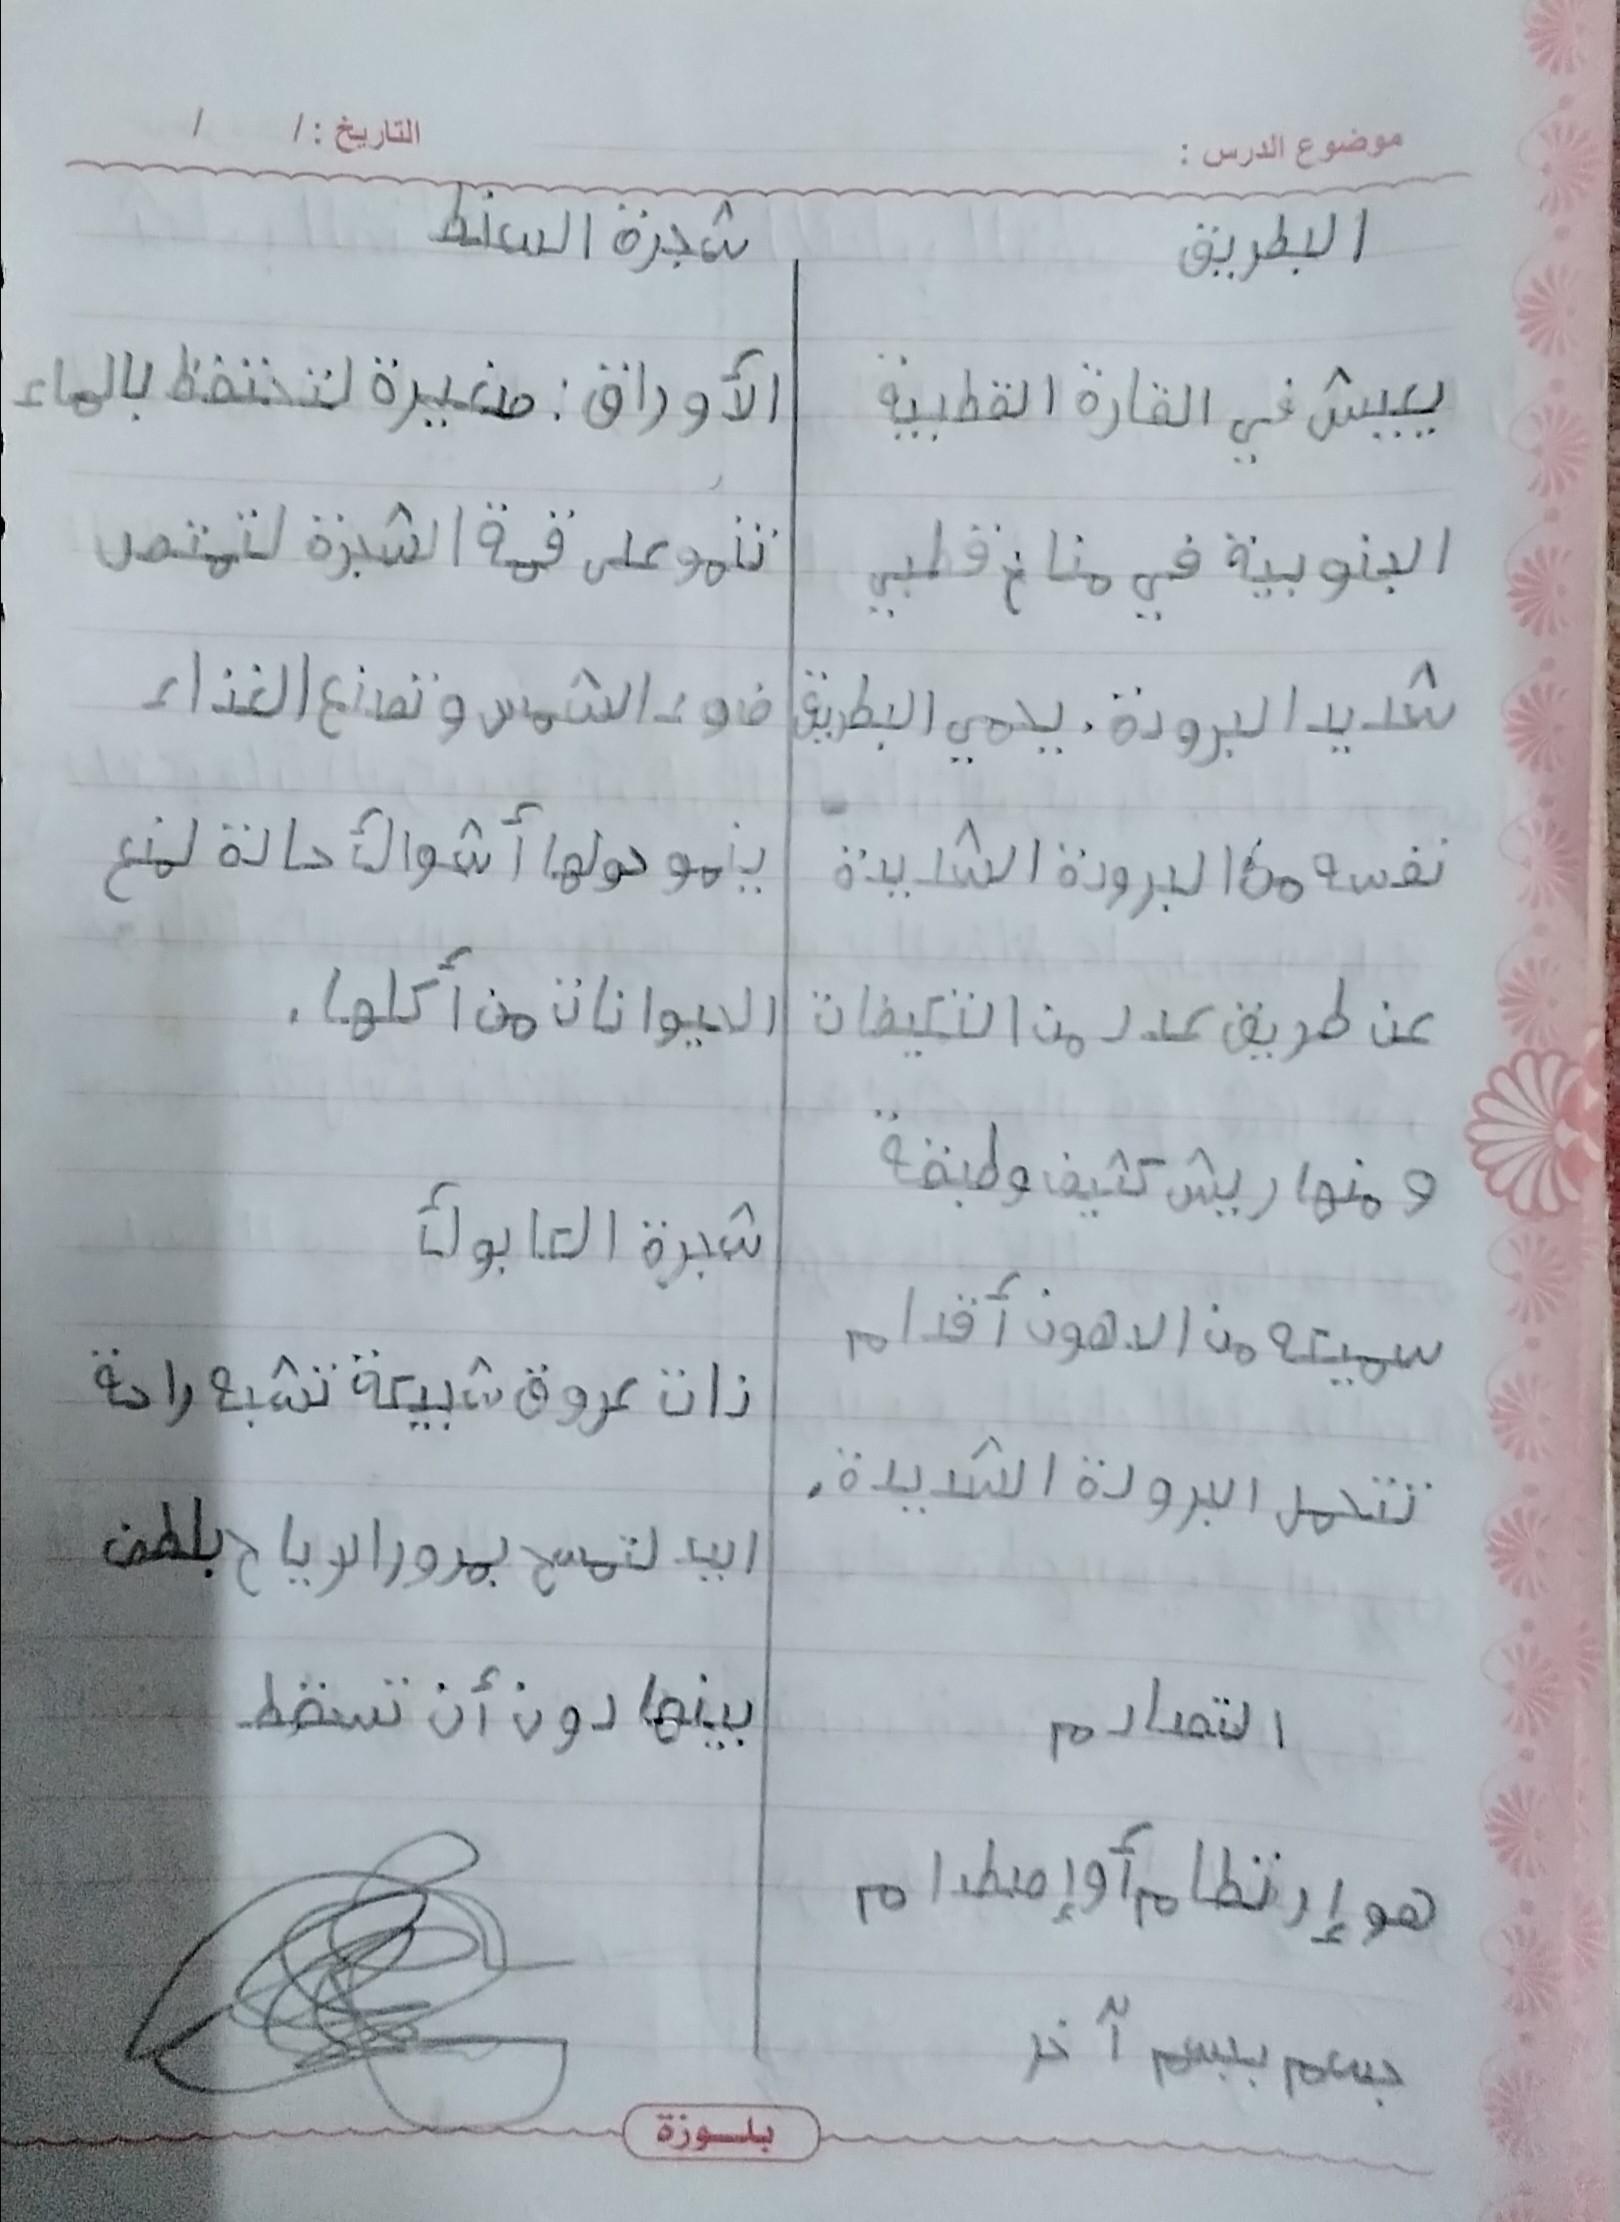 موضوع الدرس :
التاريخ : / /
البطريق
يعيش في القارة القطبية
الجنوبية في مناخ قطبي
شديد البرودة. يحمي البطريق
نفسه من البرودة الشديدة
عن طريق عدد من التكيفات
ومنها ريش كثيف وطبقة
سميكة من الدهون أقدام
تتحمل البرودة الشديدة.
التصادم
هو إرتطام أو إصطدام
جسم بجسم آخر
شجرة السنط
الأوراق: صغيرة لتحتفظ بالماء
تنمو على قمة الشجرة لتمتص
ضوء الشمس وتصنع الغذاء
ينمو حولها أشواك حادة لمنع
الحيوانات من أكلها.
شجرة الكابوك
ذات عروق شبيكة تشبه راحة
اليد لتمسح بمرور الرياح بلطف
بينها دون أن تسقط
بلوزة